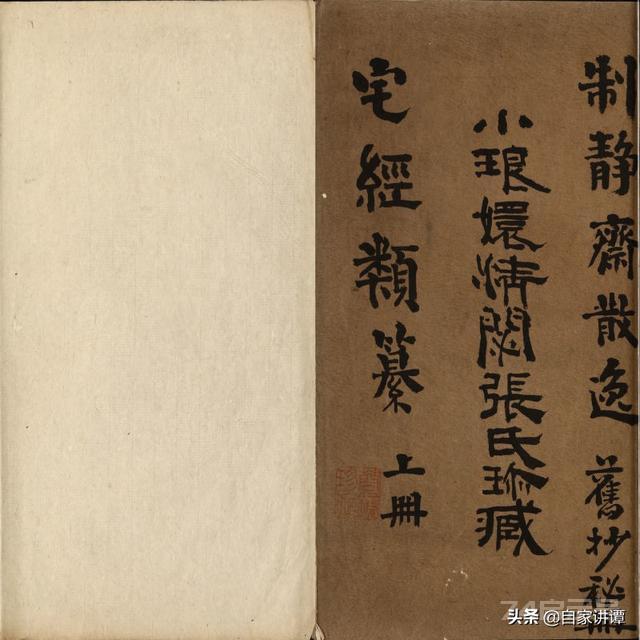 制静齋散逸 舊抄秘
小琅嬛清閟張氏珍藏
宅經類纂 上冊
头条 @自家讲谭